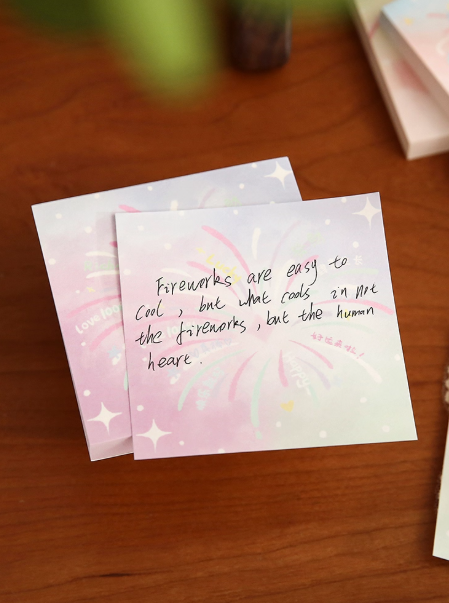 Fireworks are easy to
Cool , but what cools in not
the fireworks , but the human
heart .
Happy